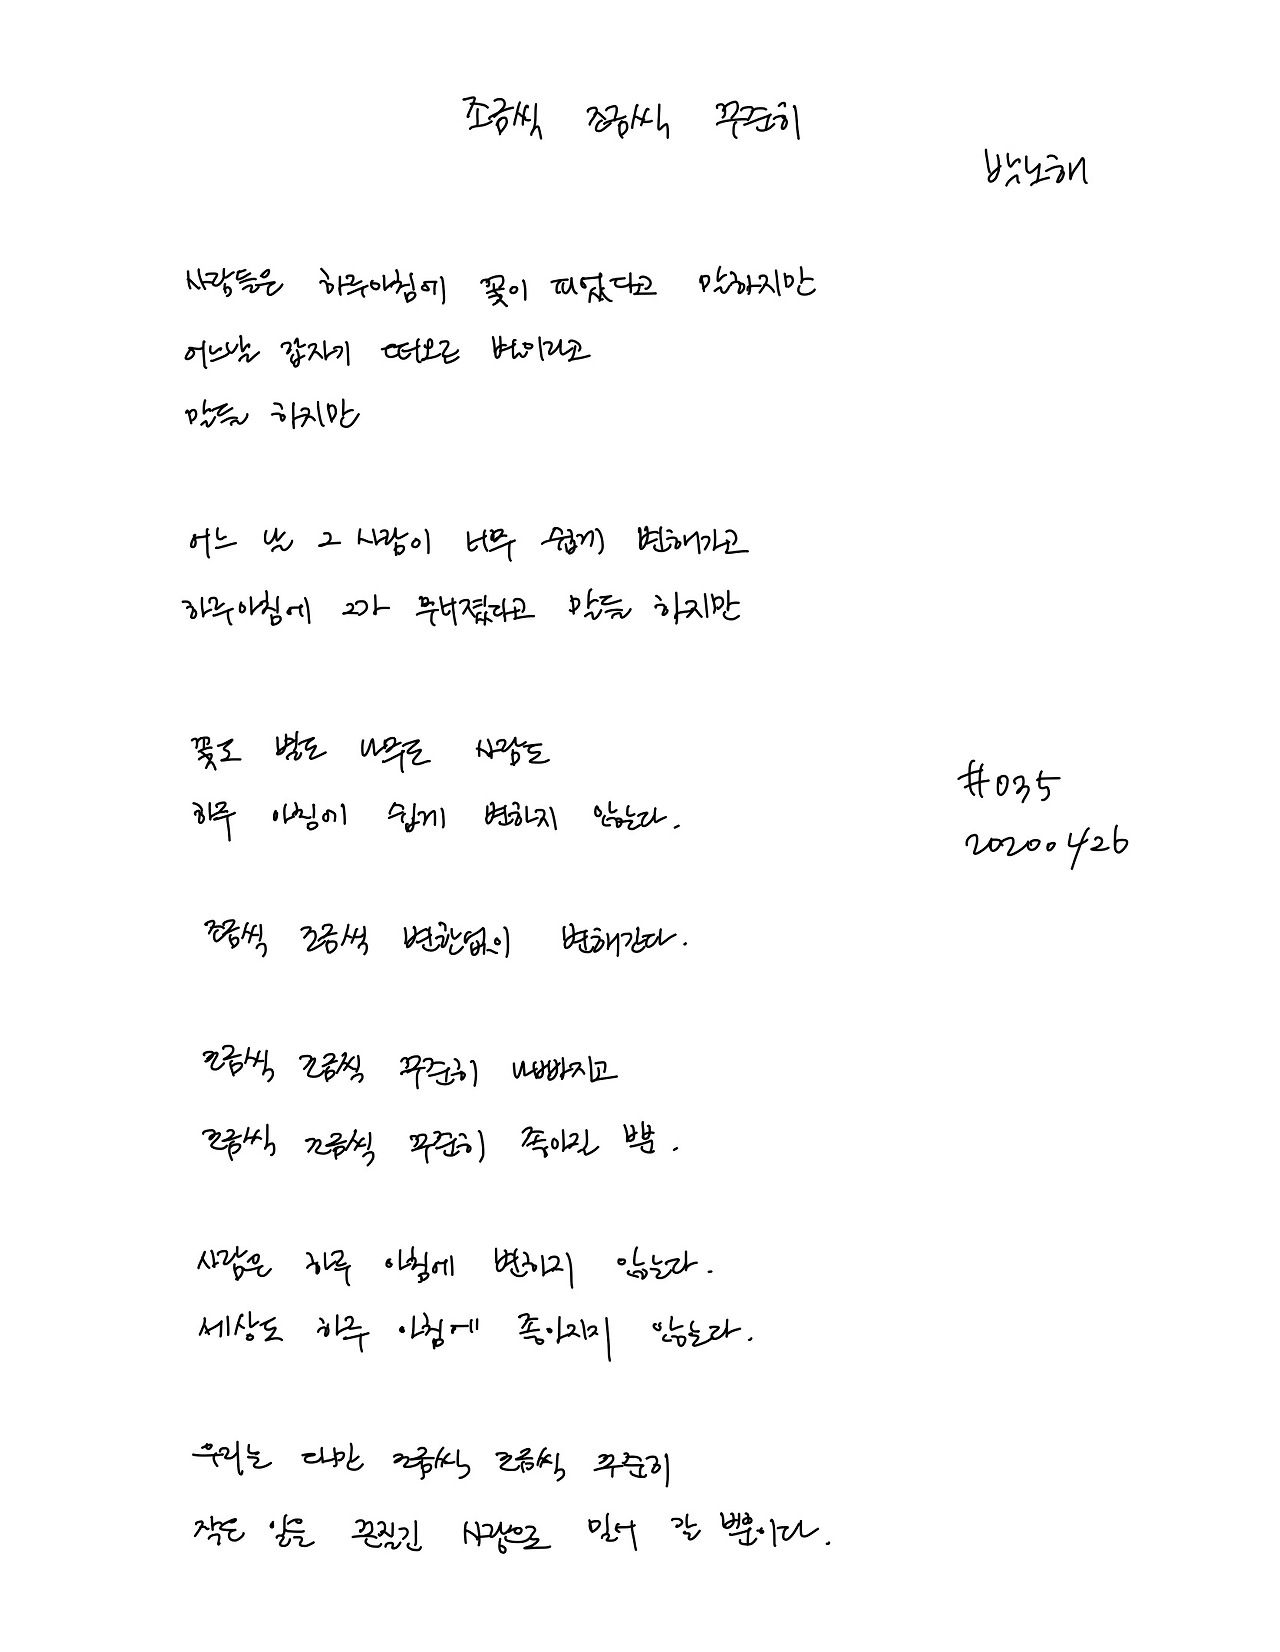 조금씩 조금씩 꾸준히
박노해
사람들은 하루아침에 꽃이 피었다고 말하지만
어느날 갑자기 떠오른 별이라고
말들 하지만
어느 날 그 사람이 너무 쉽게 변해가고
하루아침에 그가 무너졌다고 말들 하지만
꽃도 별도 나무도 사람도
하루 아침에 쉽게 변하지 않는다.
#035
2020.0426
조금씩 조금씩 변함없이 변해간다.
조금씩 조금씩 꾸준히 나빠지고
조금씩 조금씩 꾸준히 좋아질 뿐.
사람은 하루 아침에 변하지 않는다.
세상도 하루 아침에 좋아지지 않는다.
우리는 다만 조금씩 조금씩 꾸준히
작은 일을 끈질긴 사랑으로 밀어 갈 뿐이다.